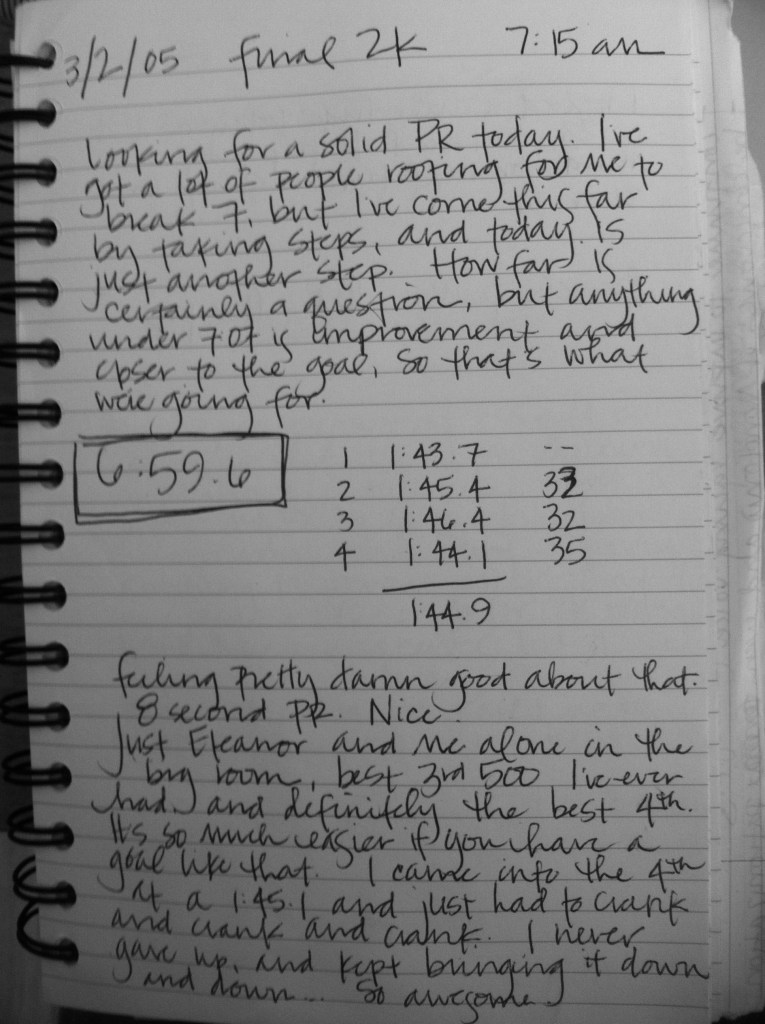 3/2/05 final 2k 7:15 am
Looking for a solid PR today. I've
got a lot of people rooting for me to
break 7, but I've come this far
by taking steps, and today is
just another step. How far is
certainly a question, but anything
under 707 is improvement and
closer to the goal, so that's what
we're going for.
6:59.6
1 1:43.7 --
2 1:45.4 33
3 1:46.4 32
4 1:44.1 35
1:44.9
feeling pretty damn good about that.
8 second PR. Nice.
Just Eleanor and me alone in the
big room, best 3rd 500 I've ever
had and definitely the best 4th.
It's so much easier if you have a
goal like that. I came into the 4th
at a 1:45.1 and just had to crank
and crank and crank. I never
gave up, and kept bringing it down
and down... so awesome